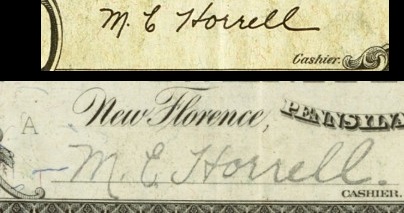 M. E Horrell
Cashier.
New Florence, PENNSYLVA
A
M. E. Horrell.
CASHIER.